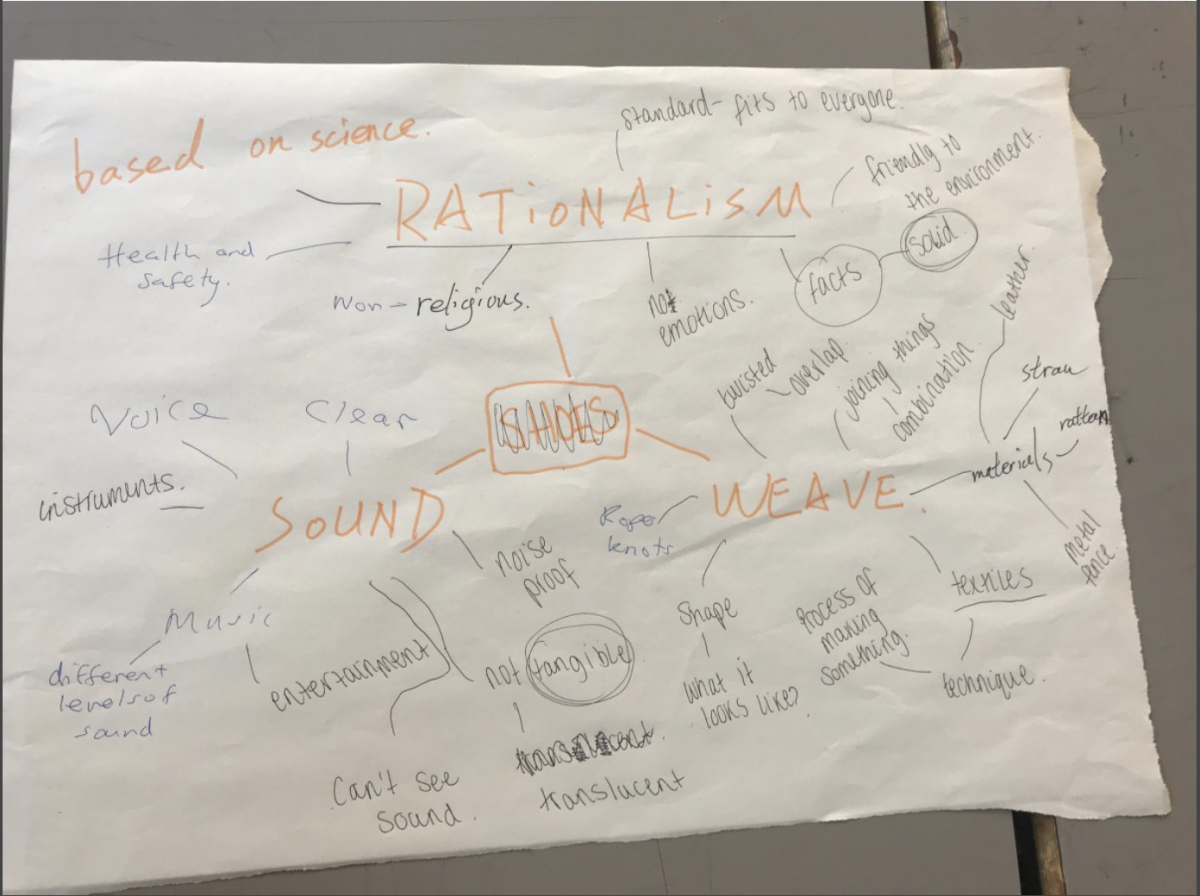 based on science.
standard- fits to everyone.
RATiONALiSM
friendly to
the environment.
Health and
safety.
Non-religious.
not
emotions.
facts
solid
Voice
Clear
instruments.
SOUND
noise
proof
Music
different
levels of
sound
entertainment
not tangible
translucent
Can't see
sound.
WEAVE.
twisted
overlap.
joining things
combination.
materials
leather.
straw
rattan
metal
fence.
Rope
knots
Shape
What it
looks like?
textiles
technique.
Process of
making
something.